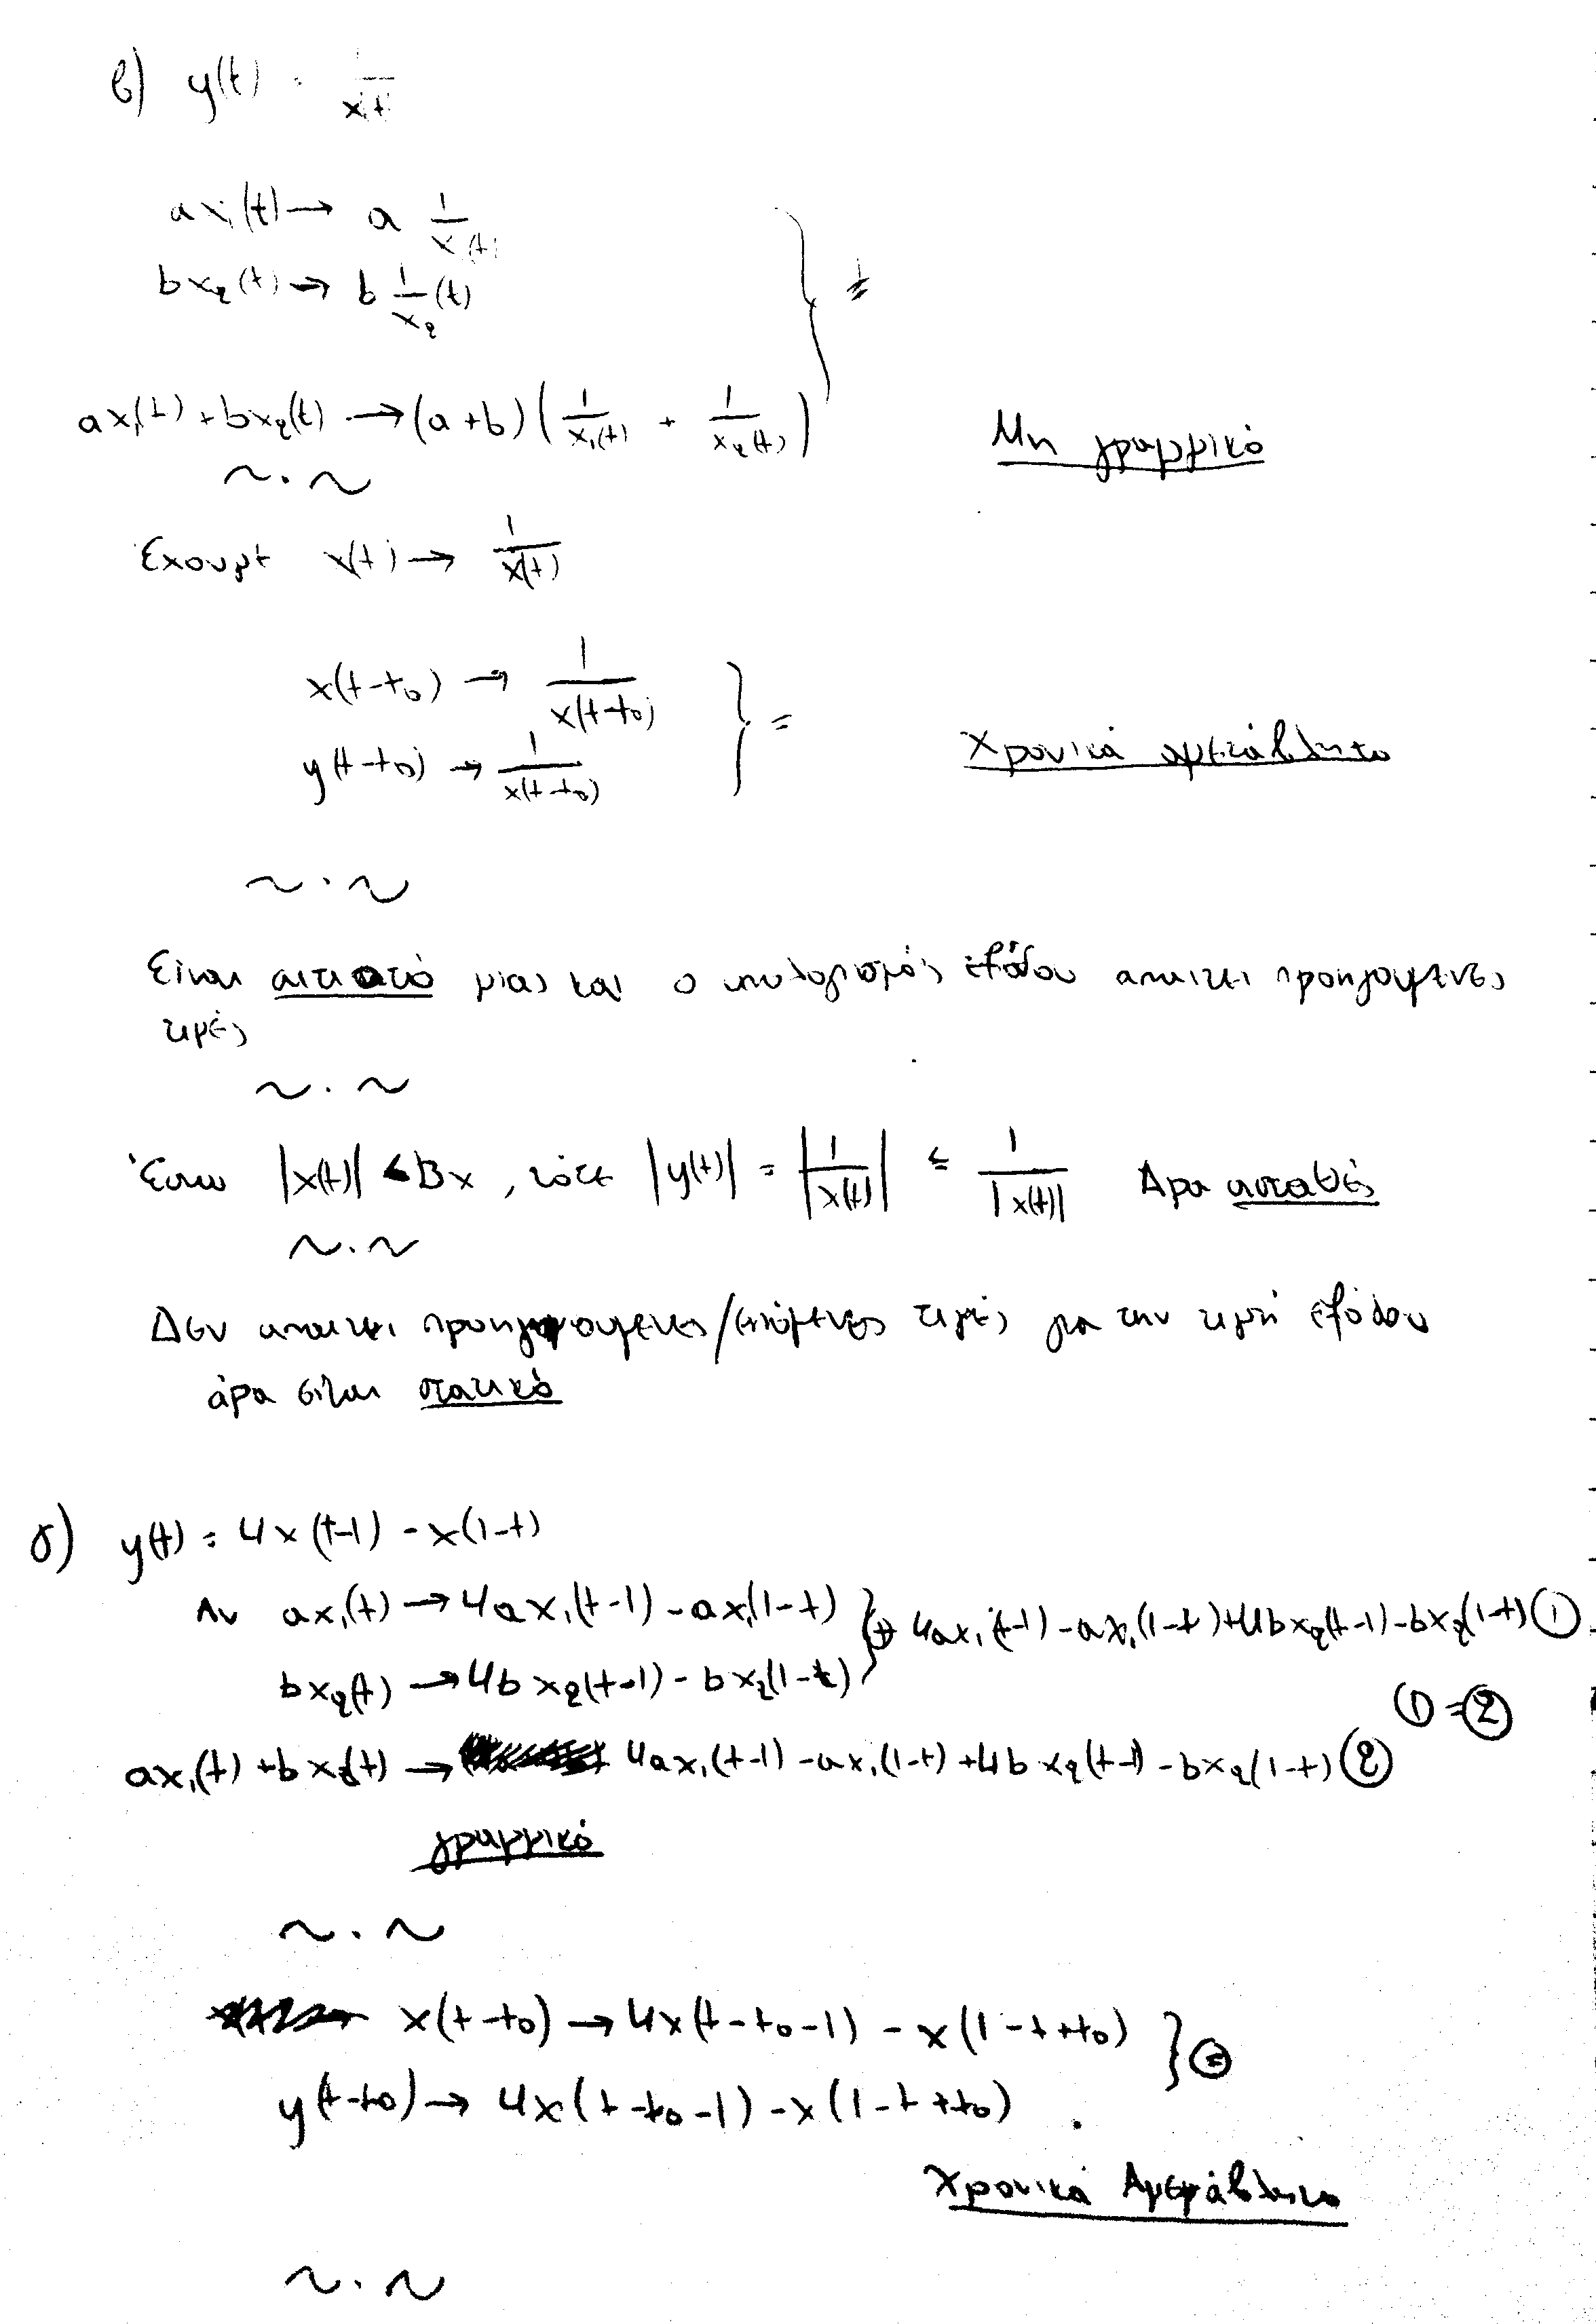 β) y(t) = 1/x(t)
a x₁(t) → a 1/x₁(t)
b x₂(t) → b 1/x₂ (t)
} ≠
a x₁(t) + b x₂(t) → (a+b) ( 1/x₁(t) + 1/x₂(t) )
Μη γραμμικό
~.~
Έχουμε x(t) → 1/x(t)
x(t-t₀) → 1/x(t-t₀)
y(t-t₀) → 1/x(t-t₀)
} =
Χρονικά αμετάβλητο
~.~
Είναι αιτιατό μιας και ο υπολογισμός εξόδου απαιτεί προηγούμενες
τιμές
~.~
Έστω |x(t)| ≤ Bx, τότε |y(t)| = |1/x(t)| ≤ 1/|x(t)| Άρα ασταθές
~.~
Δεν απαιτεί προηγούμενες/επόμενες τιμές για την τιμή εξόδου
άρα είναι στατικό
γ) y(t) = 4x(t-1) - x(1-t)
Αν ax₁(t) → 4ax₁(t-1) - ax₁(1-t) } ⊕ 4ax₁(t-1) - ax₁(1-t) + 4bx₂(t-1) - bx₂(1-t) ①
bx₂(t) → 4bx₂(t-1) - bx₂(1-t)
① = ②
ax₁(t) + bx₂(t) → 4ax₁(t-1) - ax₁(1-t) + 4bx₂(t-1) - bx₂(1-t) ②
γραμμικό
~.~
x(t-t₀) → 4x(t-t₀-1) - x(1-t+t₀)
y(t-t₀) → 4x(t-t₀-1) - x(1-t+t₀)
} ⊜
Χρονικά Αμετάβλητο
~.~